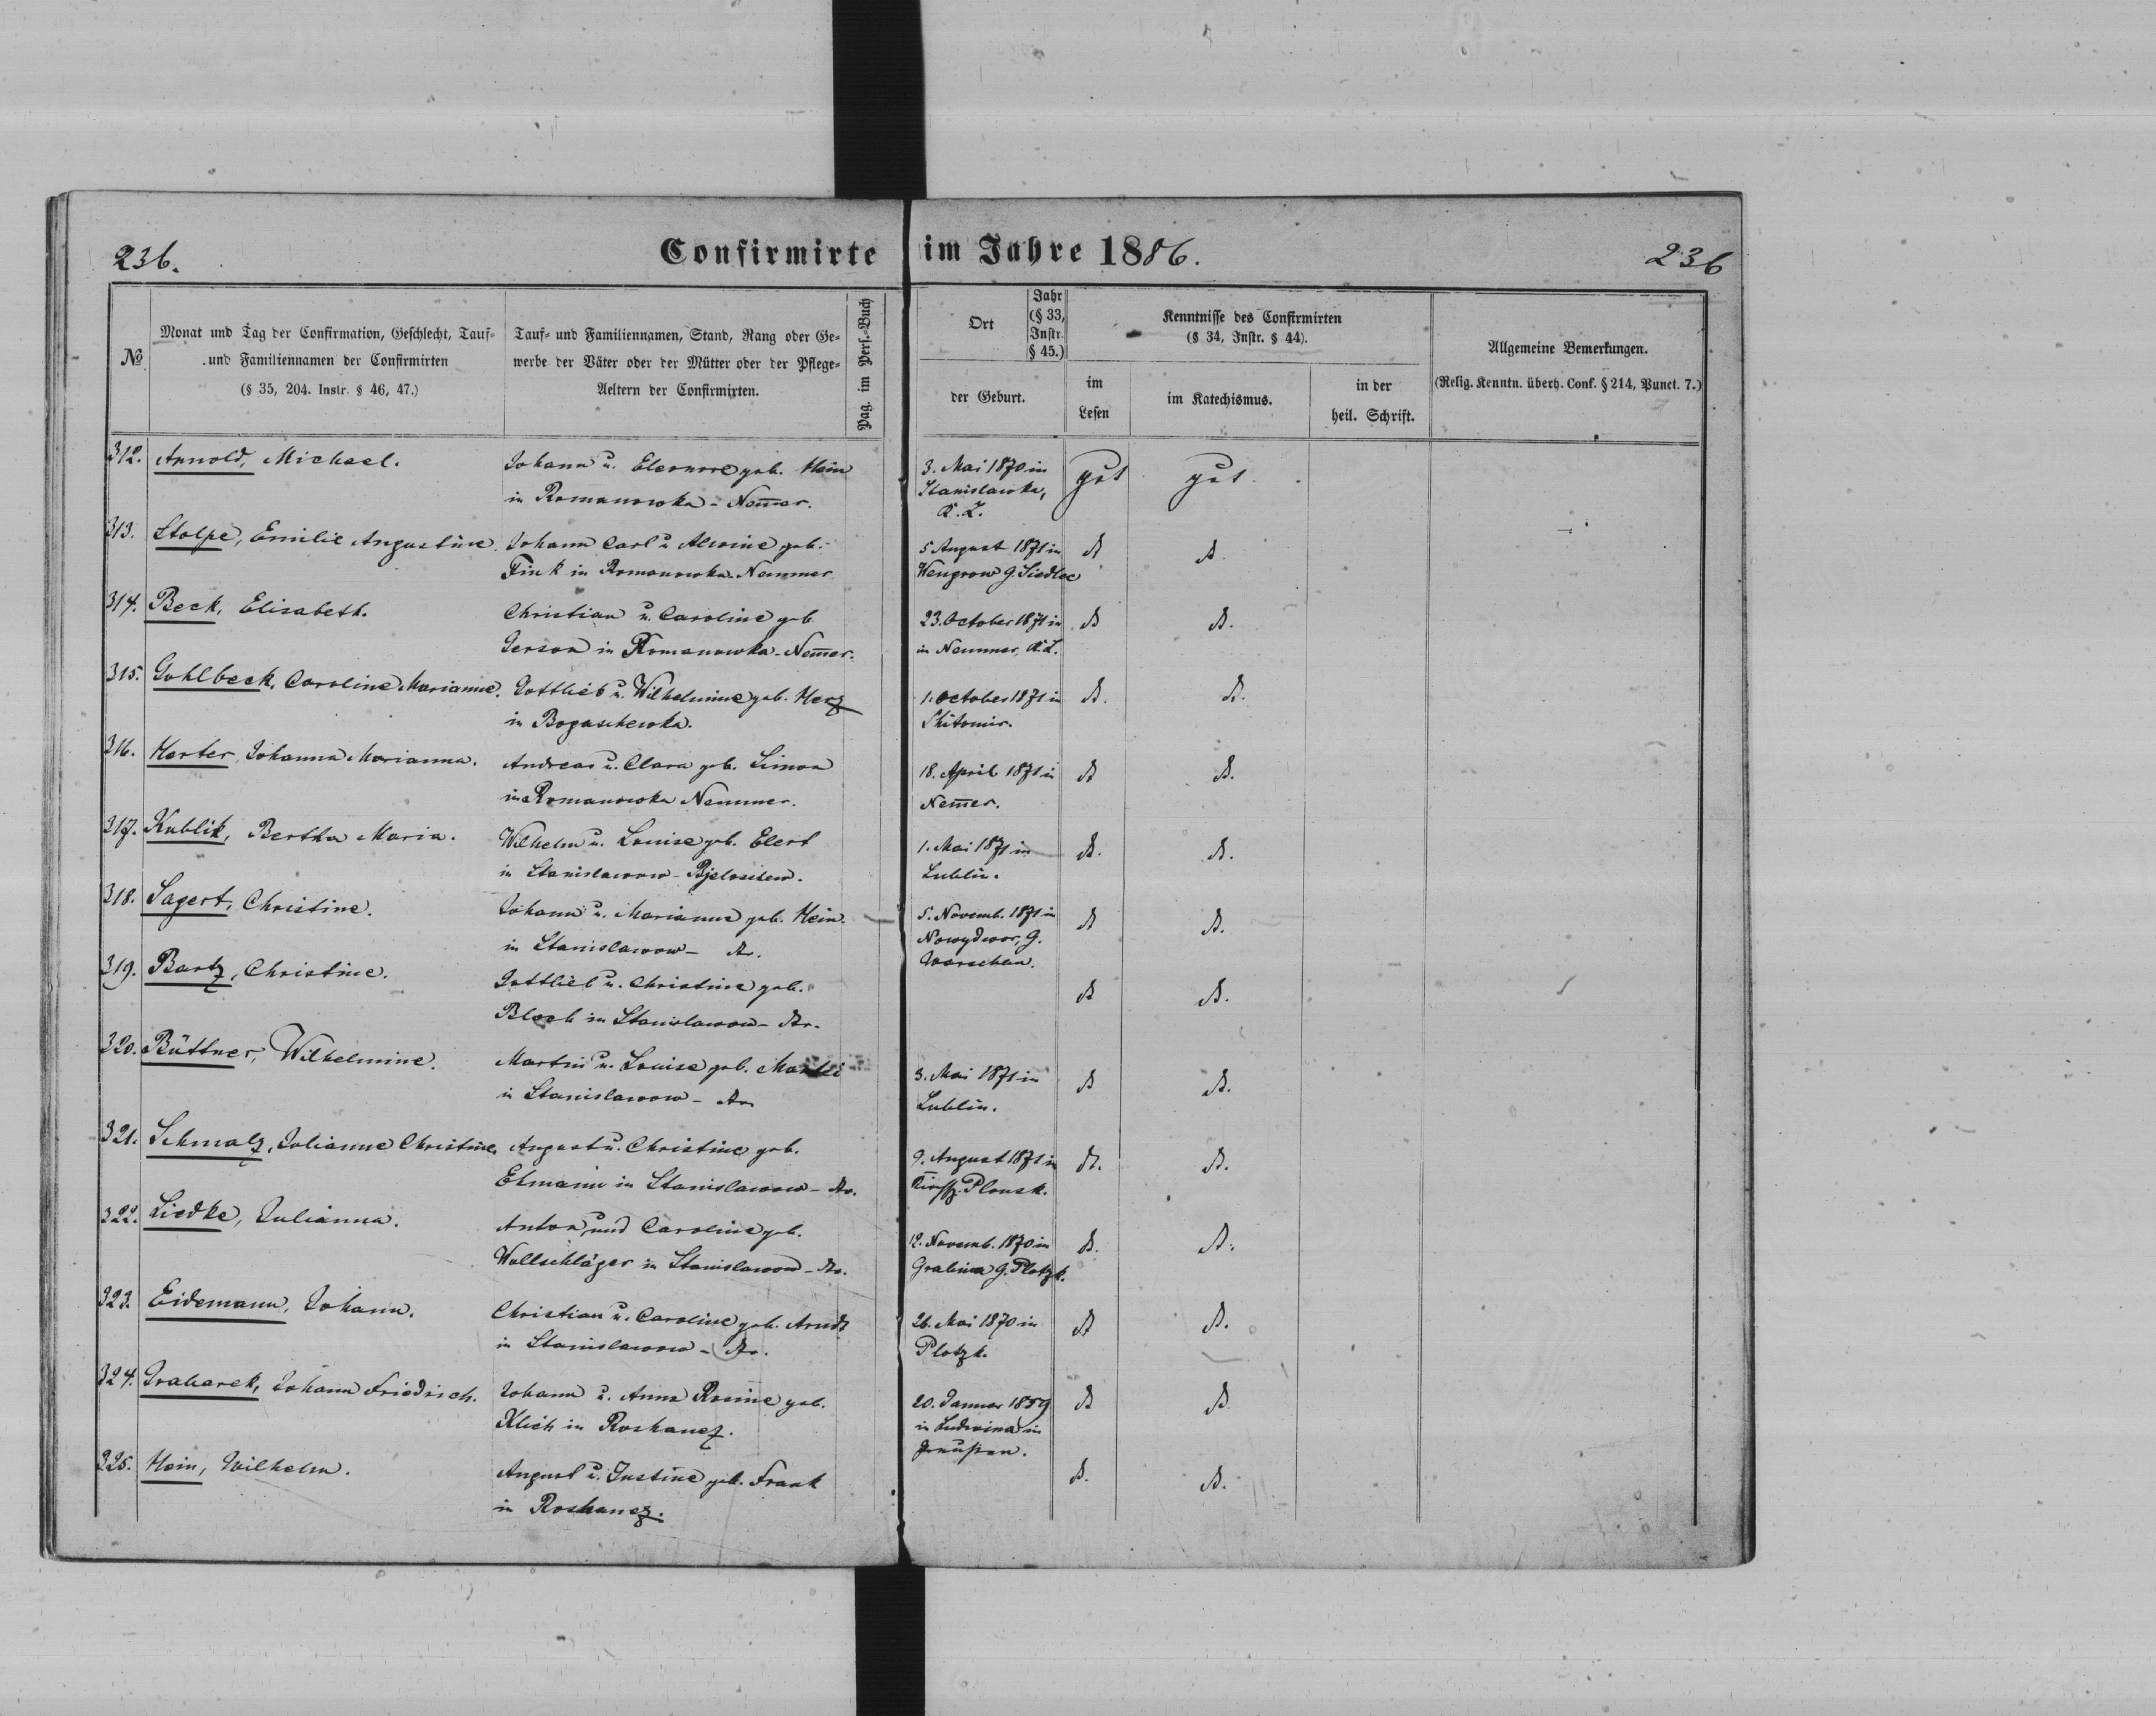 236.
Confirmirte im Jahre 1886.
236
№
Monat und Tag der Confirmation, Geschlecht, Tauf-
und Familiennamen der Confirmirten
(§ 35, 204. Instr. § 46, 47.)
Tauf- und Familiennamen, Stand, Rang oder Ge-
werbe der Väter oder der Mütter oder der Pflege-
Aeltern der Confirmirten.
Pag. im Pers.-Buch
Ort
Jahr
(§ 33,
Instr.
§ 45.)
der Geburt.
Kenntnisse des Confirmirten
(§ 34, Instr. § 44).
im
Lesen
im Katechismus.
in der
heil. Schrift.
Allgemeine Bemerkungen.
(Relig. Kenntn. überh. Conf. § 214, Punct. 7.)
312. Arnold, Michael.
Johann u. Eleonore geb. Hein
in Romanowka - Nem̅er.
3. Mai 1870 in
Stanislawka,
K. L.
gut
gut.
313. Stolpe, Emilie Augustine.
Johann Carl u. Alwine geb.
Fink in Romanowka-Nemmer
5 August 1871 in
Wengrow G. Siedlec
314. Beck, Elisabeth.
Christian u. Caroline geb.
Gerson in Romanowka-Nem̅er.
23. October 1871 in
in Nemmer, K. L.
315. Gohlbeck, Caroline Marianne.
Gottlieb u. Wilhelmine geb. Herz
in Bogaschewka.
1. October 1871 in
Shitomir.
316. Herter, Johanna Marianna.
Andreas u. Clara geb. Simon
in Romanowka Nemmer.
18. April 1871 in
Nem̅er.
317. Kublik, Bertha Maria.
Wilhelm u. Louise geb. Elert
in Stanislawow-
1. Mai 1871 in
Lublin.
318. Sagert, Christine.
Johann u. Marianne geb. Hein.
in Stanislawow-
5. Novemb. 1871 in
Nowydwor, G.
Warschau.
319. Bartz, Christine.
Gottlieb u. Christine geb.
Bloch in Stanislawow-
320. Büttner, Wilhelmine.
Martin u. Louise geb.
in Stanislawow-
3. Mai 1871 in
Lublin.
321. Schmalz, Julianne Christine.
August u. Christine geb.
Ehmann in Stanislawow-
9. August 1871 in
Plonsk.
322. Liedke, Julianna.
Anton und Caroline geb.
Wollschläger in Stanislawow-
12. Novemb. 1870 in
Grabina G. Plotzk.
323. Eidemann, Johann.
Christian u. Caroline geb. Arndt
in Stanislawow-
26. Mai 1870 in
Plotzk.
324. Grabarek, Johann Friedrich.
Johann u. Anna Rosine geb.
Klich in Roshanez.
20. Januar 1859
in Ludwina in
Preußen.
325. Hein, Wilhelm.
August u. Justine geb. Frank
in Roshanez.